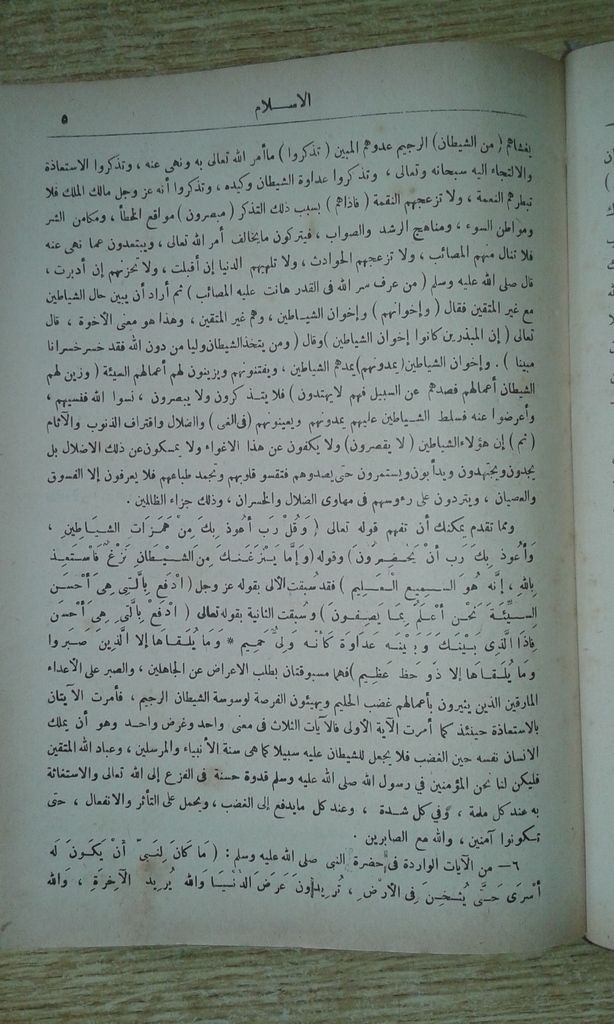 الاســلام
٥
يغشاهم ( من الشيطان ) الرجيم عدوهم المبين ( تذكروا ) ماأمر الله تعالى به ونهى عنه ، وتذكروا الاستعاذة
والالتجاء اليه سبحانه وتعالى ، وتذكروا عداوة الشيطان وكيده ، وتذكروا أنه عز وجل مالك الملك فلا
تبطرهم النعمة ، ولا تزعجهم النقمة ( فاذاهم ) بسبب ذلك التذكر ( مبصرون ) مواقع الخطأ ، ومكامن الشر
ومواطن السوء ، ومناهج الرشد والصواب ، فيتركون مايخالف أمر الله تعالى ، ويبتعدون عما نهى عنه
فلا تنال منهم المصائب ، ولا تزعجهم الحوادث ، ولا تلهيهم الدنيا إن أقبلت ، ولا تحزنهم إن أدبرت ،
قال صلى الله عليه وسلم ( من عرف سر الله فى القدر هانت عليه المصائب ) ثم أراد أن يبين حال الشياطين
مع غير المتقين فقال ( وإخوانهم ) وإخوان الشيـاطين ، وهم غير المتقين ، وهذا هو معنى الأخوة ، قال
تعالى ( إن المبذرين كانوا إخوان الشياطين ) وقال ( ومن يتخذ الشيطان وليا من دون الله فقد خسر خسرانا
مبينا ) . وإخوان الشياطين ( يمدونهم ) يمدهم الشياطين ، ويفتنونهم ويزينون لهم أعمالهم السيئة ( وزين لهم
الشيطان أعمالهم فصدهم عن السبيل فهم لايهتدون ) فلا يتـذكرون ولا يبصرون ، نسوا الله فنسيهم ،
وأعرضوا عنه فسلط الشـياطين عليهم يمدونهم ويعينونهم ( فى الغى ) والضلال واقتراف الذنوب والآثام
( ثم ) إن هؤلاء الشياطين ( لا يقصرون ) ولا يكفون عن هذا الاغواء ولا يمسكون عن ذلك الاضلال بل
يجدون ويجتهدون ويدأبون ويستمرون حتى يصدوهم فتقسو قلوبهم وتجمد طباعهم فلا يعرفون إلا الفسوق
والعصيان ، ويتردون على رءوسهم فى مهاوى الضلال والخسران ، وذلك جزاء الظالمين .
ومما تقدم يمكنك أن تفهم قوله تعالى ( وَقُلْ رَب أَعُوذ بِكَ مِنْ هَمَزَات الشـيَـاطِينِ ،
وَأَعُوذ بِكَ رَب أَنْ يَحْـضـرُونَ ) وقوله ( وَإمَّا يَـنْزَغَـنـكَ مِن الشـيْـطَانِ نَزْغ فَاسْـتَعـذ
بِاللهِ ، إنَّه هُوَ السـميع الْـعَـلِيم ) فقد سبقت الآلى بقوله عز وجل ( ادْفَع بِالَّـتِى هِىَ أَحْسَـن
السـيِّئَـةَ نَحْـنُ أَعْـلَمُ بِمَا يَصِـفـونَ ) وسبقت الثانية بقوله تعالى ( ادْفَع بِالَّتِى هِىَ أَحْسَن
فَاذَا الَّذى بَيْنَـكَ وَبَيْنَـه عَدَاوَة كَأنّـه وَلِىّ حَمِيم * وَمَا يُلَـقـاهَا إلا الَّذِينَ صَبَروا
وَمَا يُلَـقـاهَا إلا ذو حَظ عَظِيم ) فهما مسبوقتان بطلب الاعراض عن الجاهلين ، والصبر على الأعداء
المارقين الذين يثيرون بأعمالهم غضب الحليم ويهيئون الفرصة لوسوسة الشيطان الرجيم ، فأمرت الآيتان
بالاستعاذة حينئذ كما أمرت الآية الأولى فالآيات الثلاث فى معنى واحد وغرض واحد وهو أن يملك
الانسان نفسه حين الغضب فلا يجعل للشيطان عليه سبيلا كما هى سنة الأنبياء والمرسلين ، وعباد الله المتقين
فليكن لنا نحن المؤمنين فى رسول الله صلى الله عليه وسلم قدوة حسنة فى الفزع إلى الله تعالى والاستغاثة
به عند كل ملمة ، وفى كل شـدة ، وعند كل مايدفع إلى الغضب ، ويحمل على التأثر والانفعال ، حتى
تـكونوا آمنين ، والله مع الصابرين .
٦ — من الآيات الواردة فى حضرة النبى صلى الله عليه وسلم : ( مَا كَانَ لِنَبـىّ أَنْ يَكُونَ لَه
أَسْرَى حَـتَّى يُثـخِـنَ فِى الْأَرْضِ ، تُرِيدُونَ عَرَضَ الدُّنْـيَـا وَاللهُ يُرِيدُ الْآخِرَةَ ، وَاللهُ